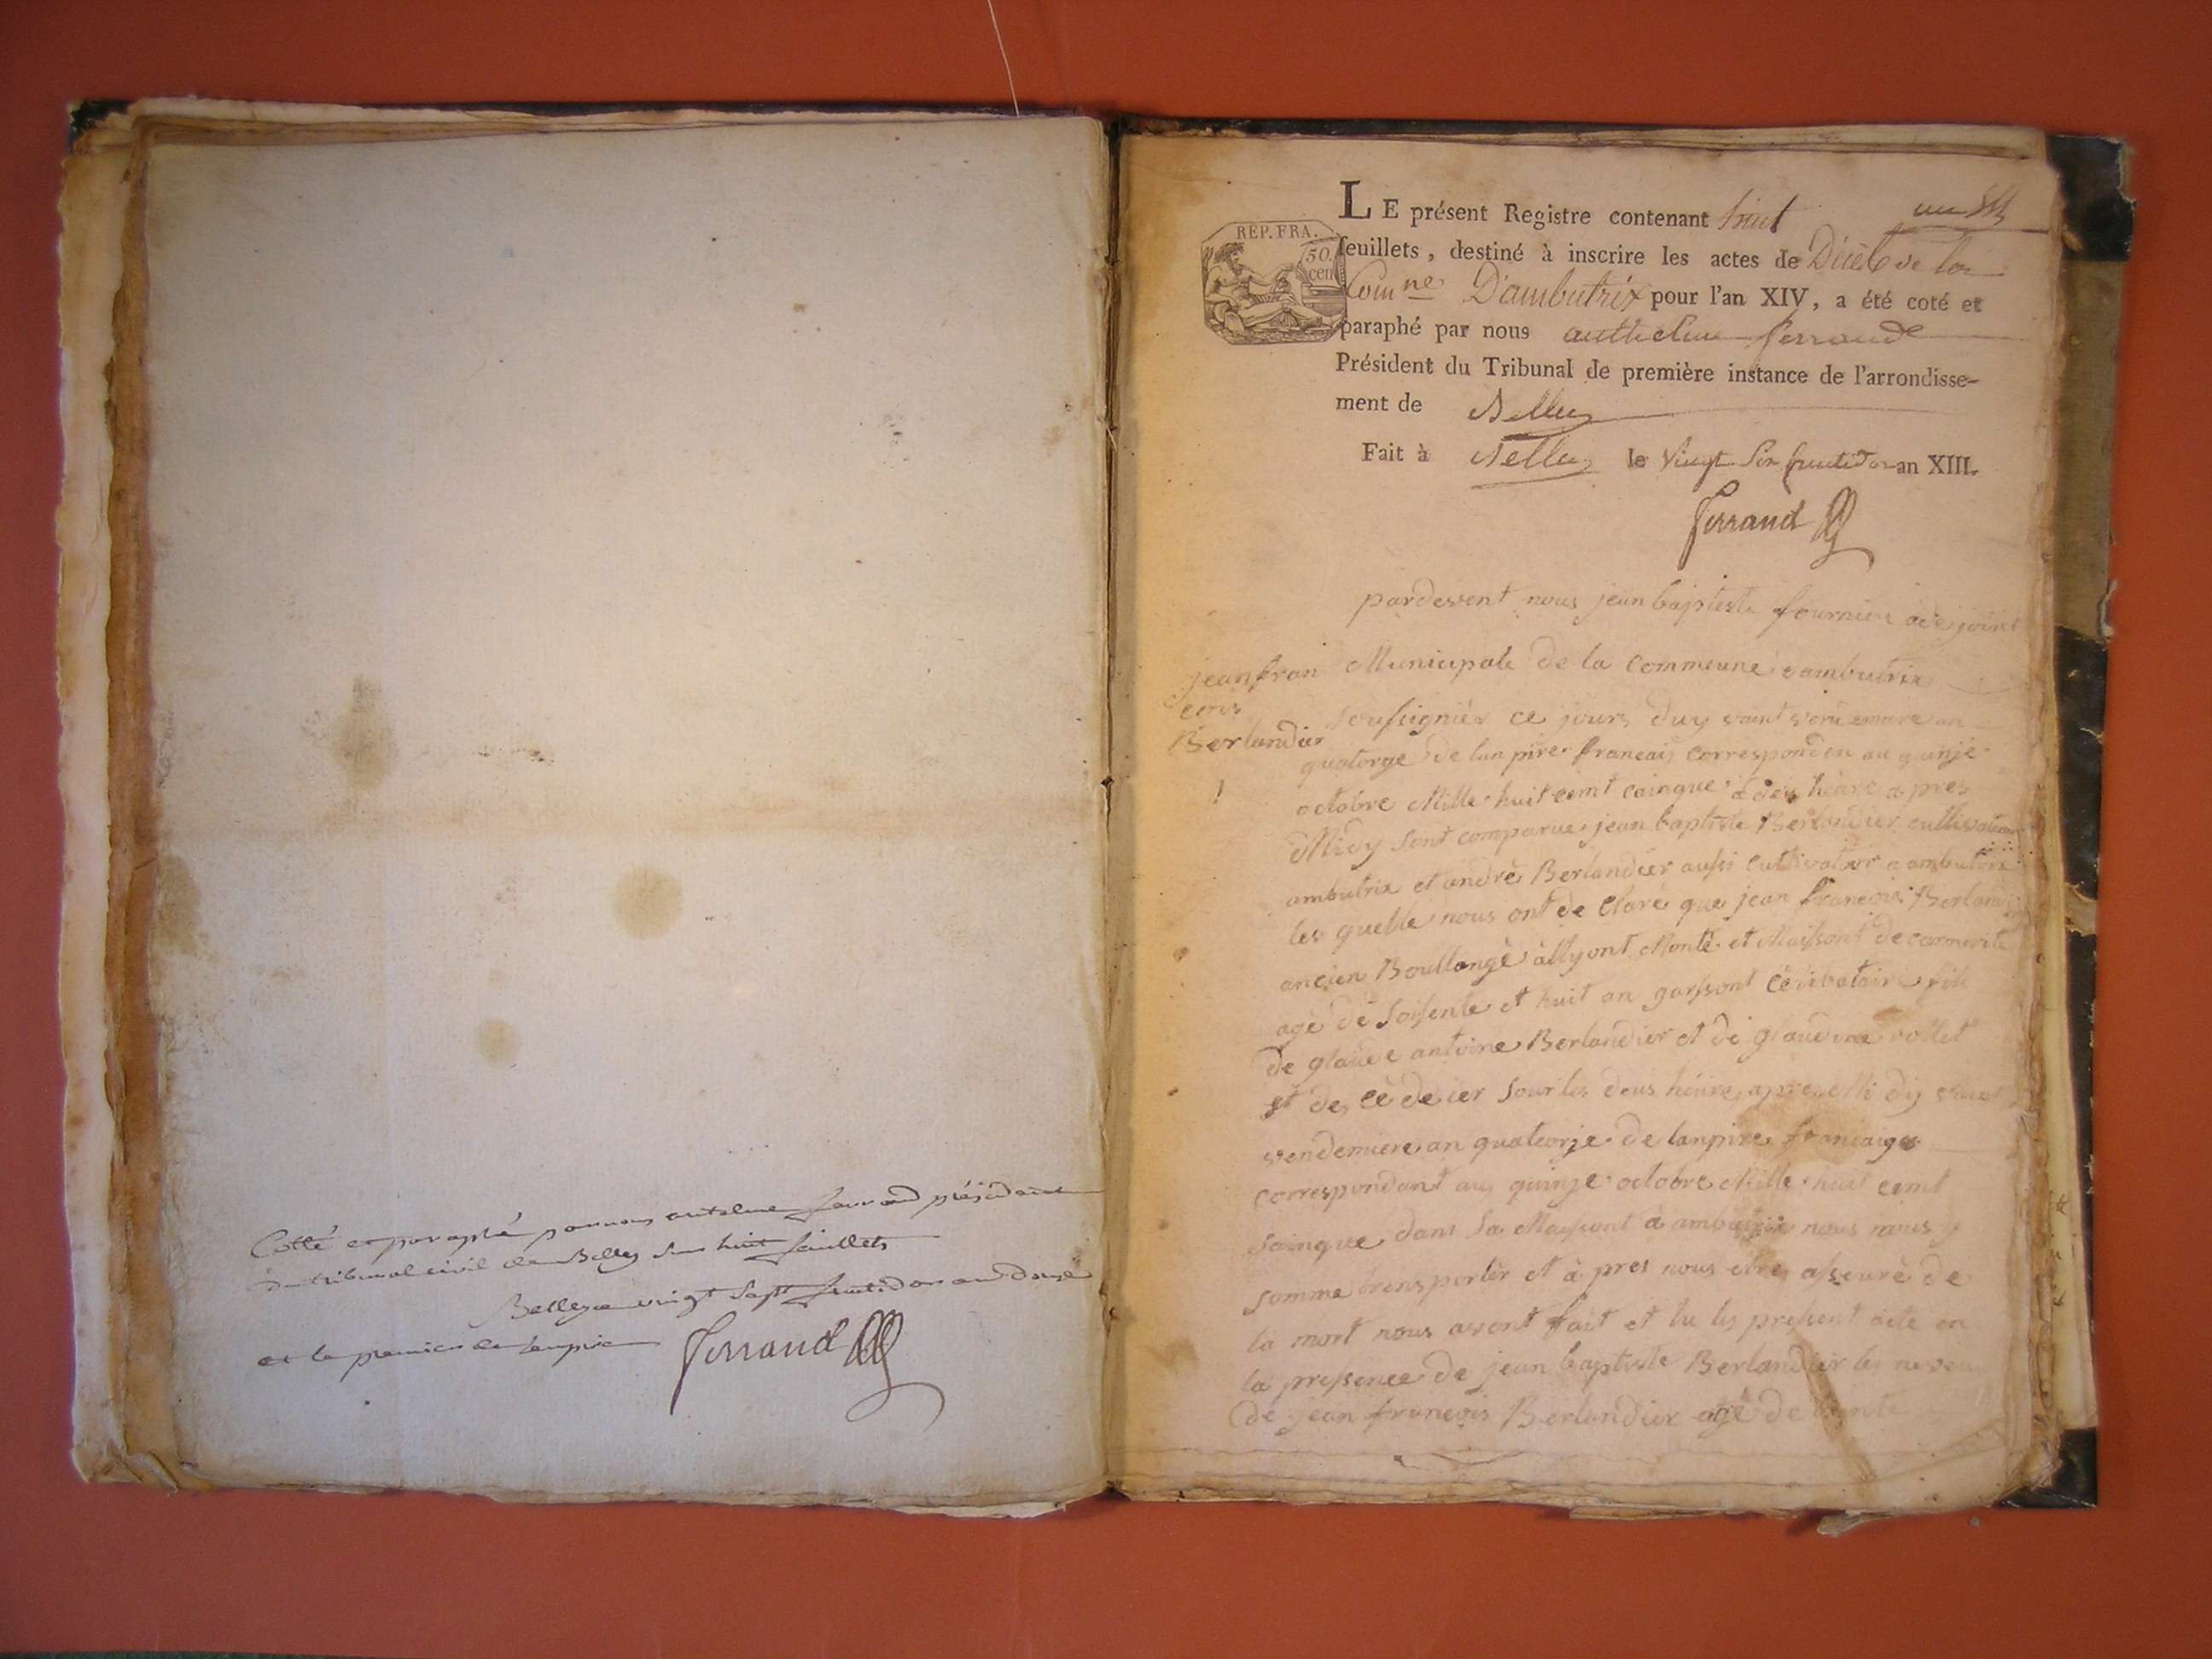 Cotté et paraphé par nous antelme ferrand président
du tribunal civil de Belley sur huit feuillets
Belley ce vingt sept fructidor an douze
et le premier de lempire Ferrand
REP. FRA.
50 cen
LE présent Registre contenant huit un
feuillets, destiné à inscrire les actes de Décès de la
Comne D'ambutrix pour l'an XIV, a été coté et
paraphé par nous anthelme ferrand
Président du Tribunal de première instance de l'arrondisse-
ment de Belley
Fait à Belley le vingt six fructidor an XIII.
Ferrand
pardevent nous jean baptiste fournier adejoint
jean fran
cois
Berlandier
Municipale de la commeune dambutrix
soussignièr ce jours duy vaint
quatorze de lanpire francais corresponden au quinze
octobre Mille huit cemt cainque à deus héure a pres
Midy sont comparue jean baptiste Berlandier cultivateur
ambutrix et andrè Berlandier aussi cultivateur a ambutrix
les quelle nous ont de claré que jean francois Berlandier
ancien Boullangè àllyont Montè et Maissont de
agè de soissente et huit an garssont cèlibataire fils
de glaude antoine Berlandier et de glaudine rollet
et de cè de ier sour les deus héure apres Mi dy
vendemiere an quatorze de lanpire francaige
correspondant au quinze octobre Mille huit cemt
sainque dans sa Mayssont à ambutrix nous nous
somme trensportèr et à pres nous etre asseurè de
la mort nous avont fait et lu les pressent acte en
la pressence de jean baptiste Berlandier le neveu
de jean francois Berlandier agè de trente